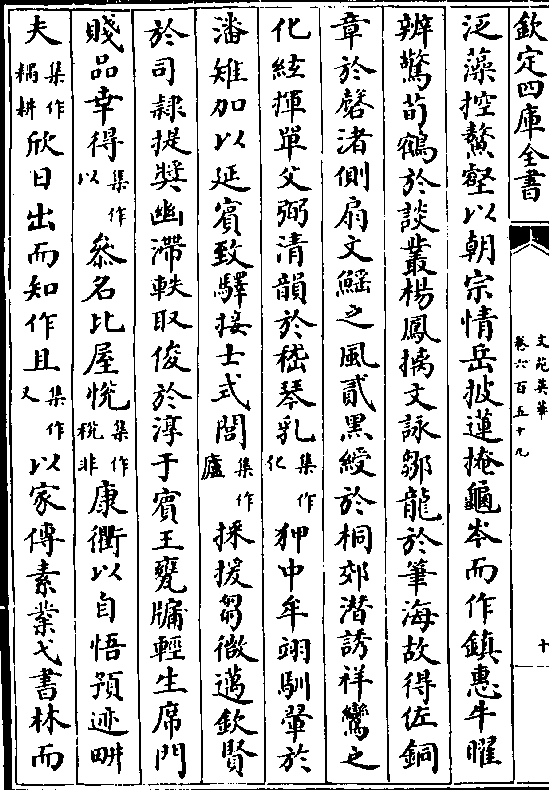 欽定四庫全書
文苑英華
卷六百五十九
十
泛藻控鰲壑以朝宗情岳披蓮掩龜岑而作鎮惠牛曜
辨驚荀鶴於談叢楊鳳摛文詠鄒龍於筆海故得佐銅
章於磬渚側扇文鰩之風貳黑綬於桐郊潜誘祥鸞之
化絃揮單父弼清韻於嵇琴乳集作化狎中牟翊馴翬於
潘雉加以延賓致驛接士式閭集作廬採援芻微邁欽賢
於司隷提奬幽滯軼取俊於淳于賓王甕牖輕生席門
賤品幸得集作以叅名比屋恱集作稅非康衢以自悟預迹畊
夫集作耦耕欣日出而知作且集作又以家傳素業弋書林而